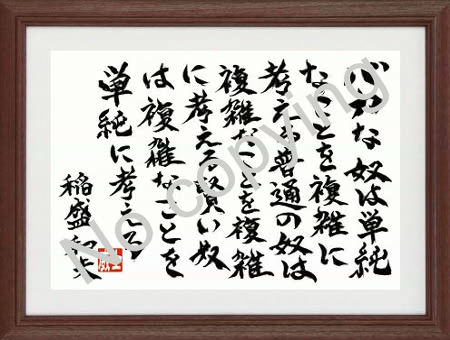 バカな奴は単純
なことを複雑に
考える普通の奴は
複雑なことを複雑
に考える賢い奴
は複雑なことを
単純に考える
稲盛和夫
No copying